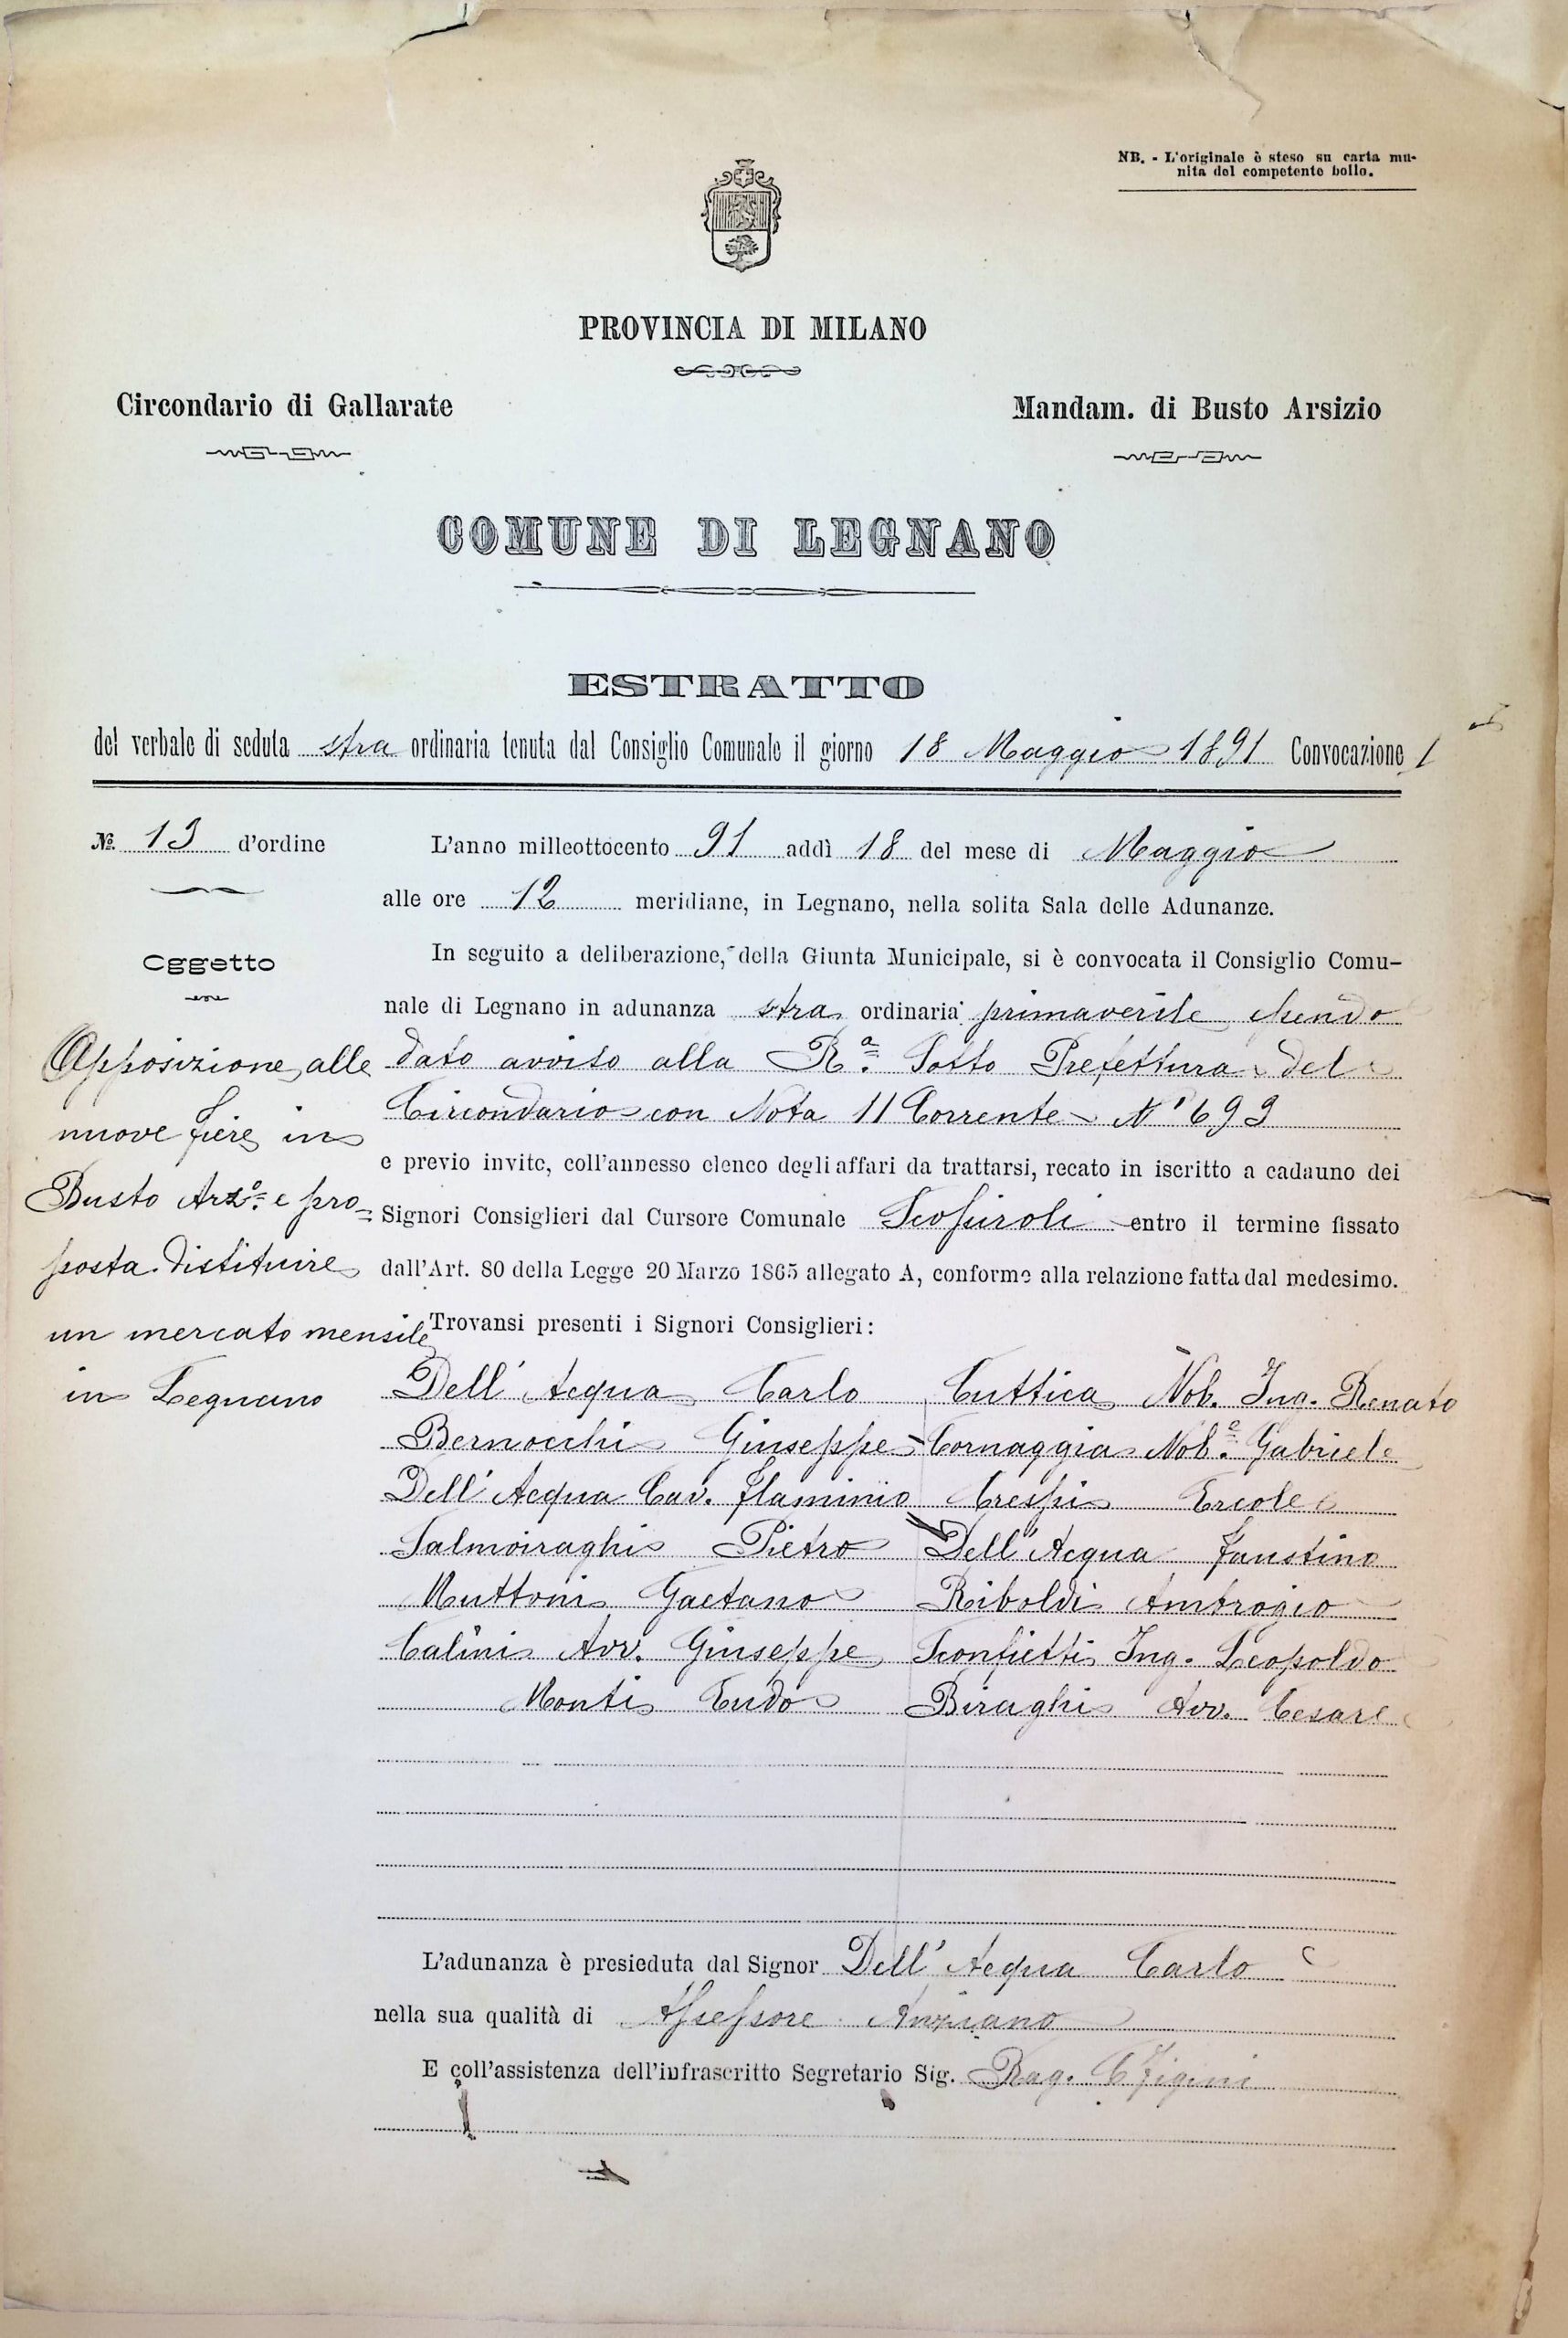 NB. - L'originale è steso su carta mu-
nita del competente bollo.
PROVINCIA DI MILANO
Circondario di Gallarate
Mandam. di Busto Arsizio
COMUNE DI LEGNANO
ESTRATTO
del verbale di seduta stra ordinaria tenuta dal Consiglio Comunale il giorno 18 Maggio 1891 Convocazione I
No. 13 d'ordine
Oggetto
Opposizione alle
nuove fiere in
Busto Arzo. e pro=
posta d'istituire
un mercato mensile
in Legnano
L'anno milleottocento 91 addì 18 del mese di Maggio
alle ore 12 meridiane, in Legnano, nella solita Sala delle Adunanze.
In seguito a deliberazione, della Giunta Municipale, si è convocata il Consiglio Comu-
nale di Legnano in adunanza stra ordinaria primaverile essendo
dato avviso alla Ra. Sotto Prefettura del
Circondario con Nota 11 Corrente No 699
e previo invito, coll'annesso elenco degli affari da trattarsi, recato in iscritto a cadauno dei
Signori Consiglieri dal Cursore Comunale entro il termine fissato
dall'Art. 80 della Legge 20 Marzo 1865 allegato A, conforme alla relazione fatta dal medesimo.
Trovansi presenti i Signori Consiglieri:
Dell'Acqua Carlo Cuttica Nob. Ing. Renato
Bernocchi Giuseppe Cornaggia Nobe. Gabriele
Dell'Acqua Cav. Flaminio Crespi Ercole
Salmoiraghi Pietro Dell'Acqua Faustino
Muttoni Gaetano Riboldi Ambrogio
Calini Avv. Giuseppe Sconfietti Ing. Leopoldo
Monti Eudo Biraghi Avv. Cesare
L'adunanza è presieduta dal Signor Dell'Acqua Carlo
nella sua qualità di Assessore Anziano
E coll'assistenza dell'infrascritto Segretario Sig. Rag. C Figini